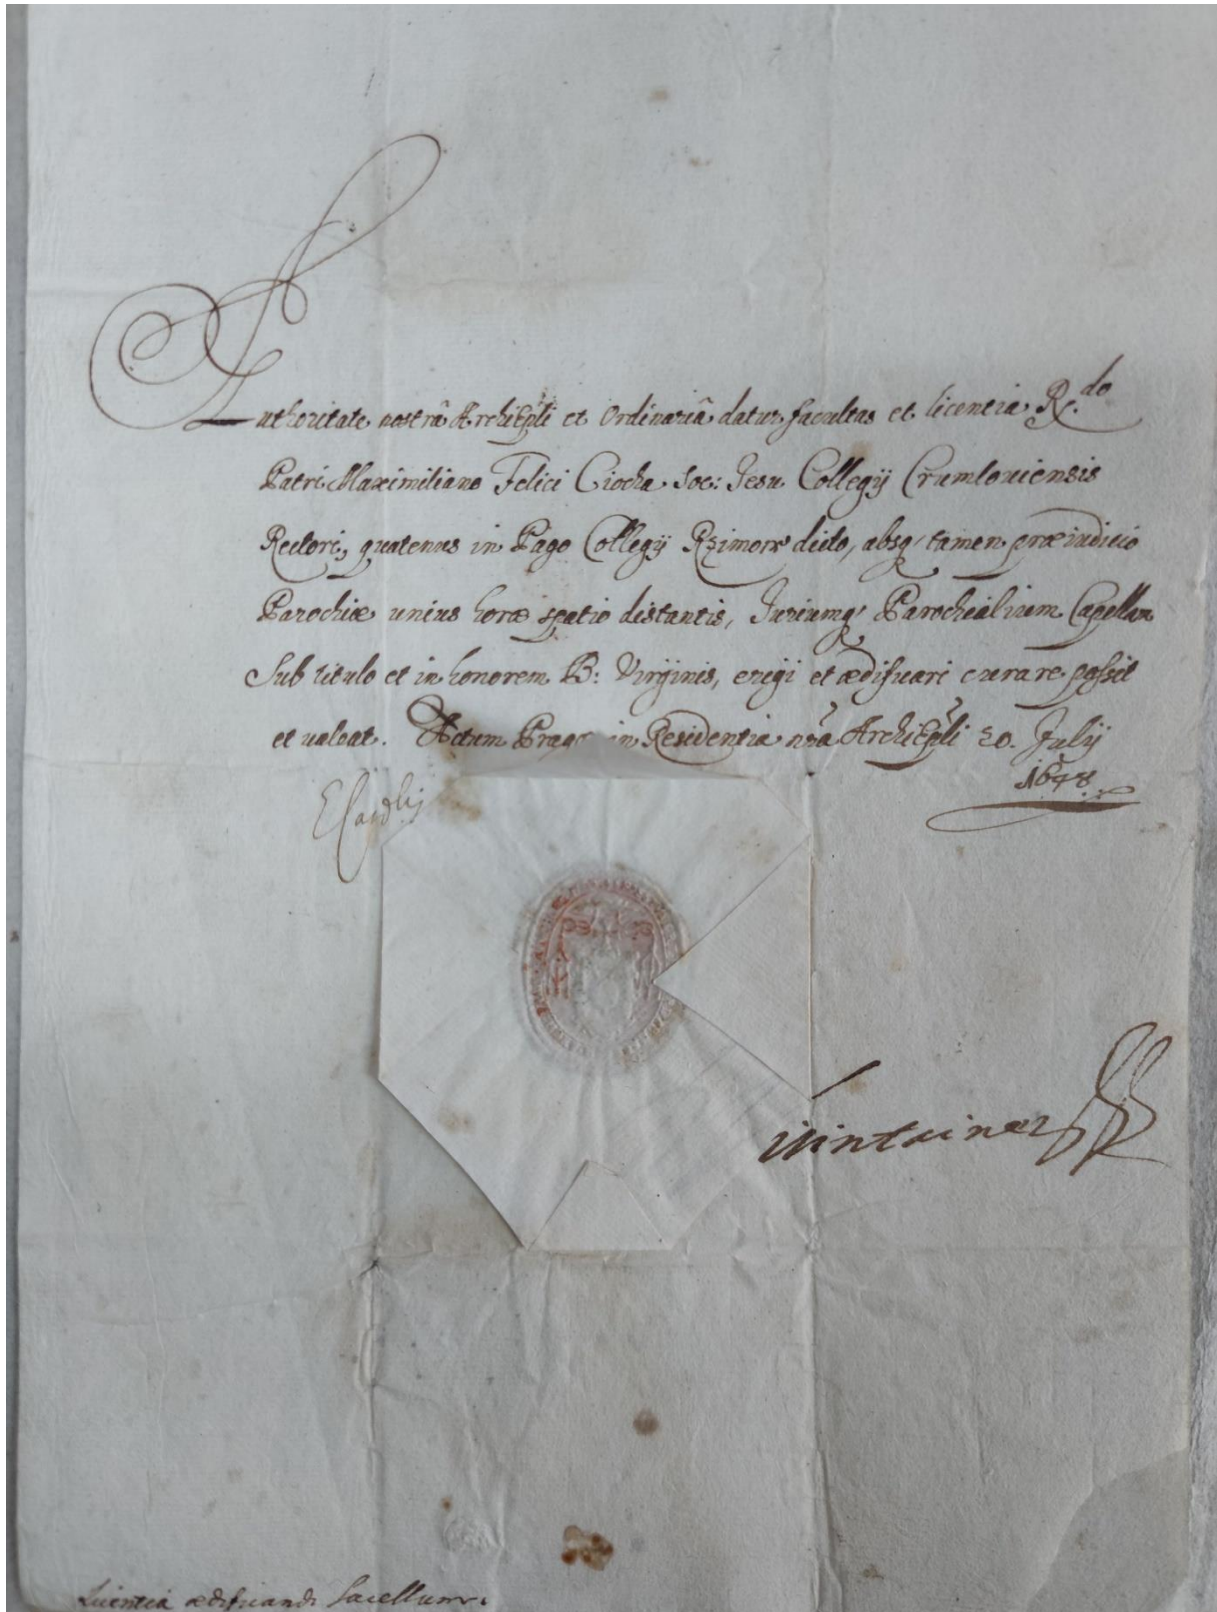 Authoritate nostrâ ArchiEpli et Ordinariâ datur facultas et licentia R.do
Patri Maximiliano Felici Ciocha Soc: Jesu Collegij Crumlouiensis
Rectori, quatenus in Pago Collegij Rzimow dicto, absq; tamen præiudicio
Parochiæ unius horæ spatio distantis, Juriumq; Parochialium Capellam
Sub titulo et in honorem B: Virginis, erigi et ædificari curare possit
et ualeat. Actum Pragæ in Residentia nrâ ArchiEpli 20. Julij
1648.
Licentia ædificandi Sacellum.